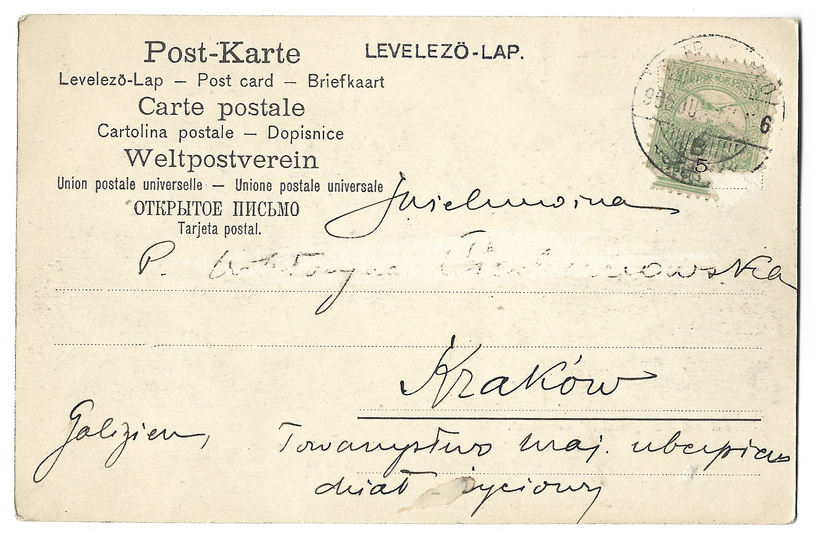 Post-Karte
LEVELEZÖ-LAP.
Levelezö-Lap — Post card — Briefkaart
Carte postale
Cartolina postale — Dopisnice
Weltpostverein
Union postale universelle — Unione postale universale
ОТКРЫТОЕ ПИСЬМО
Tarjeta postal.
6
5
P.
Kraków
Galizien,
Towarzystwo wzaj. ubezpiecz
dział życiowy